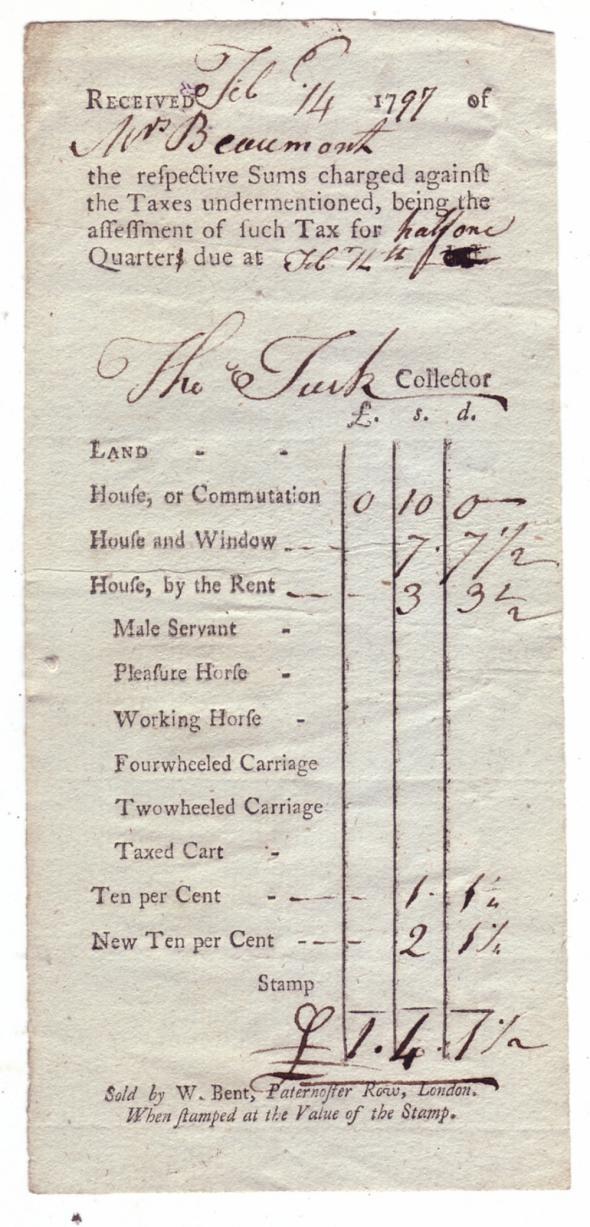 RECEIVED Feb 14 1797 of
Mrs Beaumont
the reſpective Sums charged againſt
the Taxes undermentioned, being the
aſſeſſment of ſuch Tax for half one
Quarters due at Feb
Tho Turk Collector
£. s. d.
LAND - -
House, or Commutation 0 10 0
Houſe and Window 7 7 1/2
Houſe, by the Rent 3 3 1/2
Male Servant -
Pleaſure Horſe -
Working Horſe -
Fourwheeled Carriage
Twowheeled Carriage
Taxed Cart -
Ten per Cent - 1 1 1/4
New Ten per Cent - 2 1 1/4
Stamp
£ 1. 4. 1 1/2
Sold by W. Bent, Paternoſter Row, London.
When ſtamped at the Value of the Stamp.